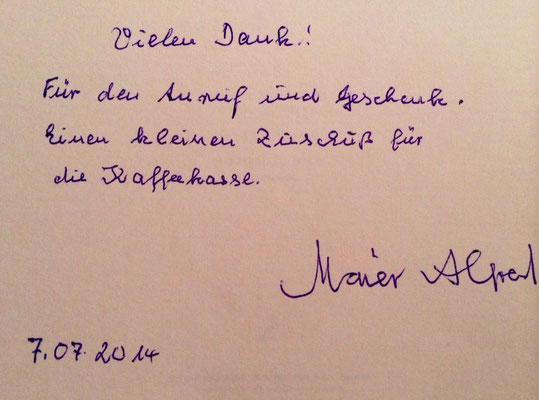 Vielen Dank!
Für den Anruf und Geschenk.
Einen kleinen Zuschuß für
die Kaffeekasse.
Maier Alfred
7.07.2014